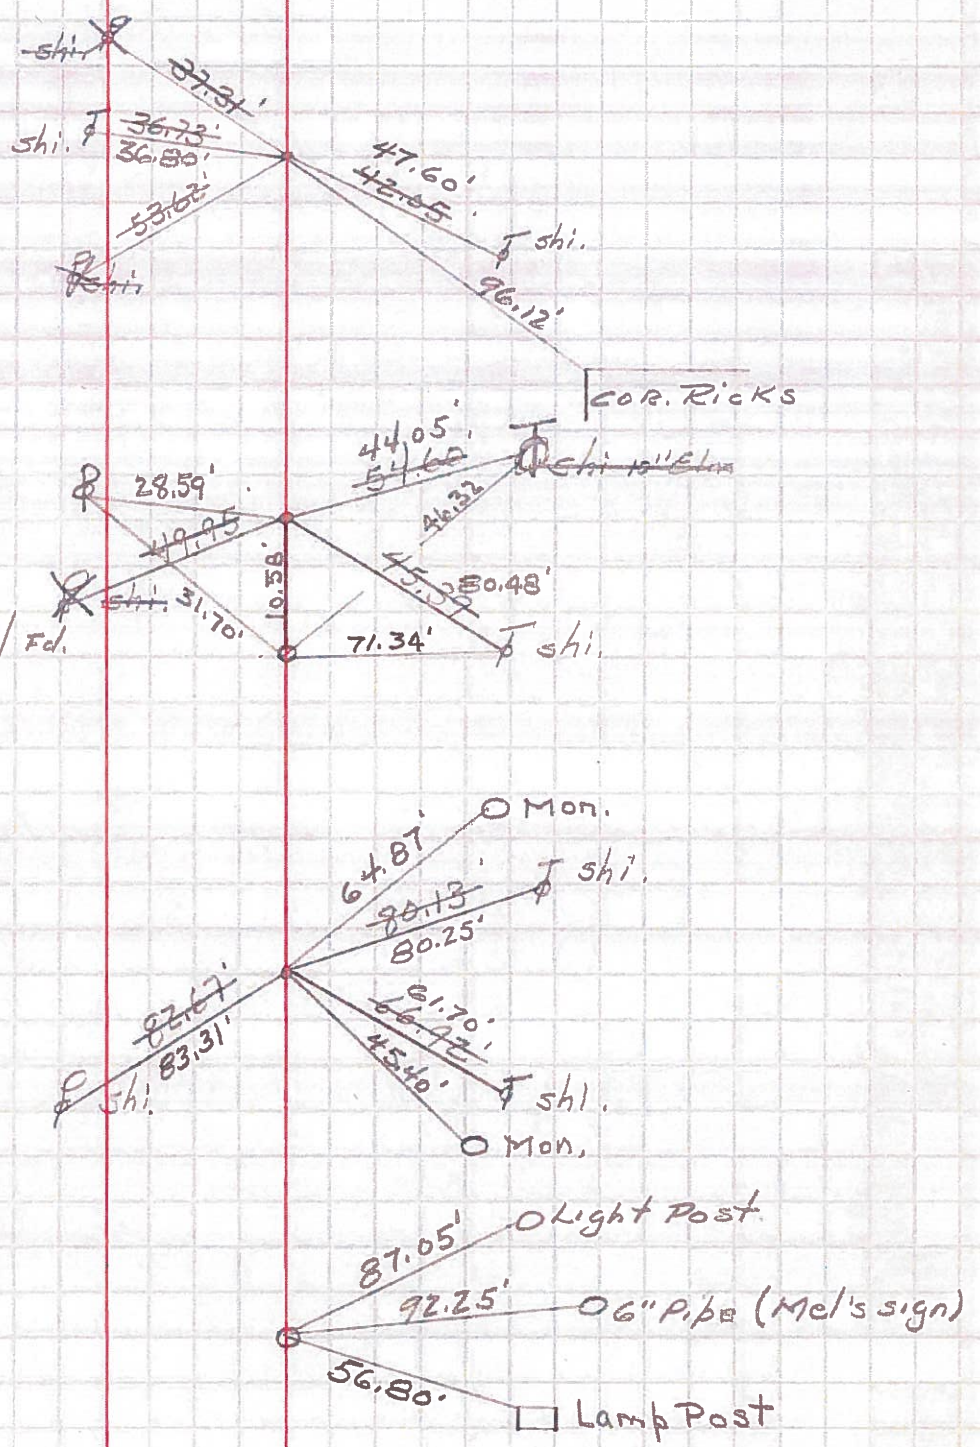 shi.
37.31'
36.73'
shi. 36.80'
53.62'
shi.
47.60'
42.05
shi.
96.12'
COR. RICKS
44.05'
54.60
shi 10" Elm
28.59'
46.32
49.95
10.58'
45.39
80.48'
shi. 31.70'
Fd.
71.34'
shi.
Mon.
64.87'
shi.
80.13'
80.25'
82.67'
83.31'
61.70'
66.92'
45.40'
shi.
shi.
Mon.
Light Post
87.05'
92.25'
6" Pipe (Mel's sign)
56.80'
Lamp Post